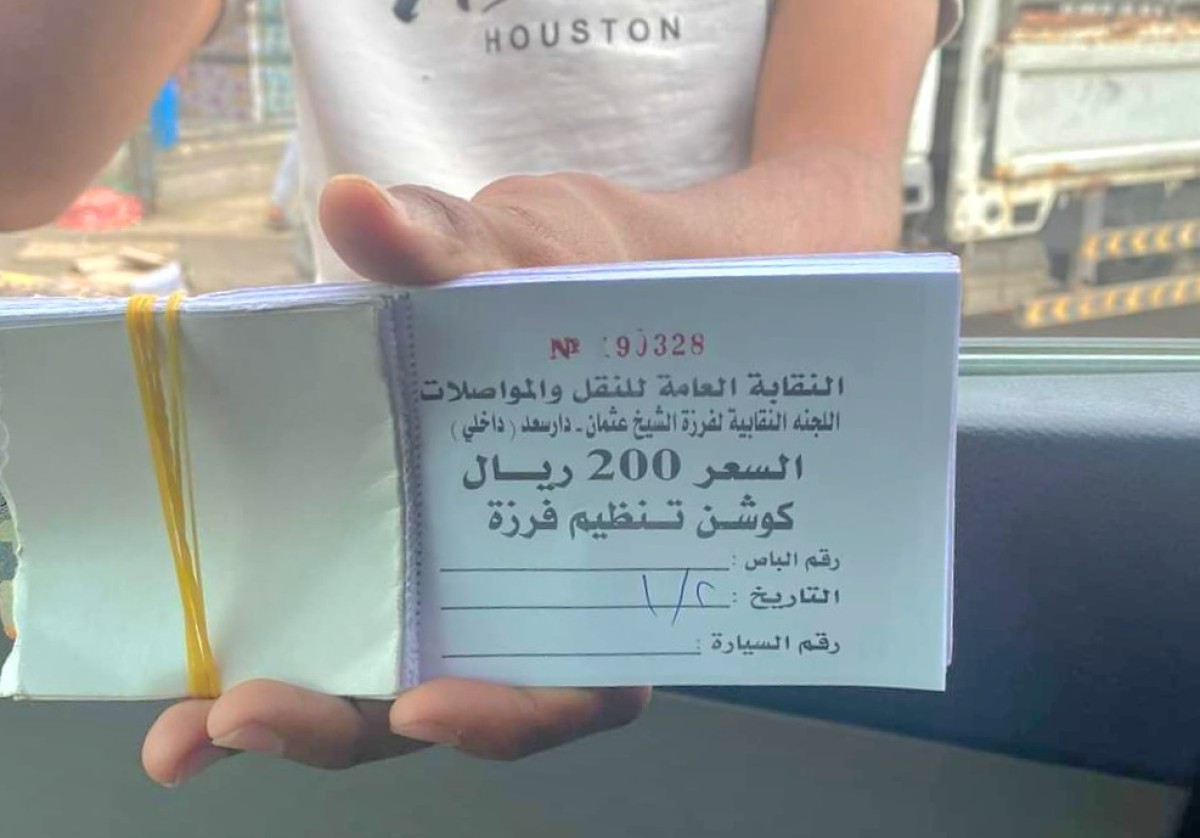 HOUSTON
№ 90328
النقابة العامة للنقل والمواصلات
اللجنه النقابية لفرزة الشيخ عثمان - دارسعد (داخلي)
السعر 200 ريال
كوشن تنظيم فرزة
رقم الباص :
التاريخ : ٢/١
رقم السيارة :